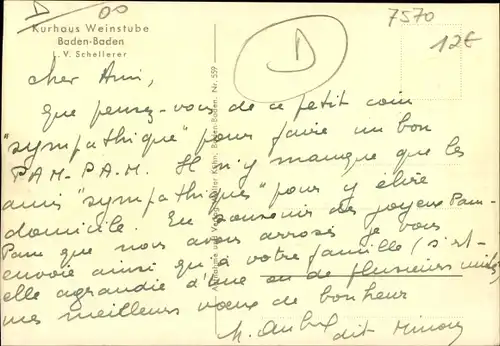 D 00
7570
12€
Kurhaus Weinstube
Baden-Baden
L. V. Schellerer
D
Cher Ami,
que pensez-vous de ce petit coin
"sympathique" pour faire un bon
PAM-PAM. Il n'y manque que les
amis "sympathiques" pour y élire
domicile. En souvenir des joyeux Pam-
Pam que nous avons arrosés je vous
envoie ainsi qu'à votre famille (s'est-
elle agrandie d'une ou de plusieurs
mes meilleurs vœux de bonheur
M. dit
Aufnahme und Verlag Kühn, Baden-Baden. Nr. 559